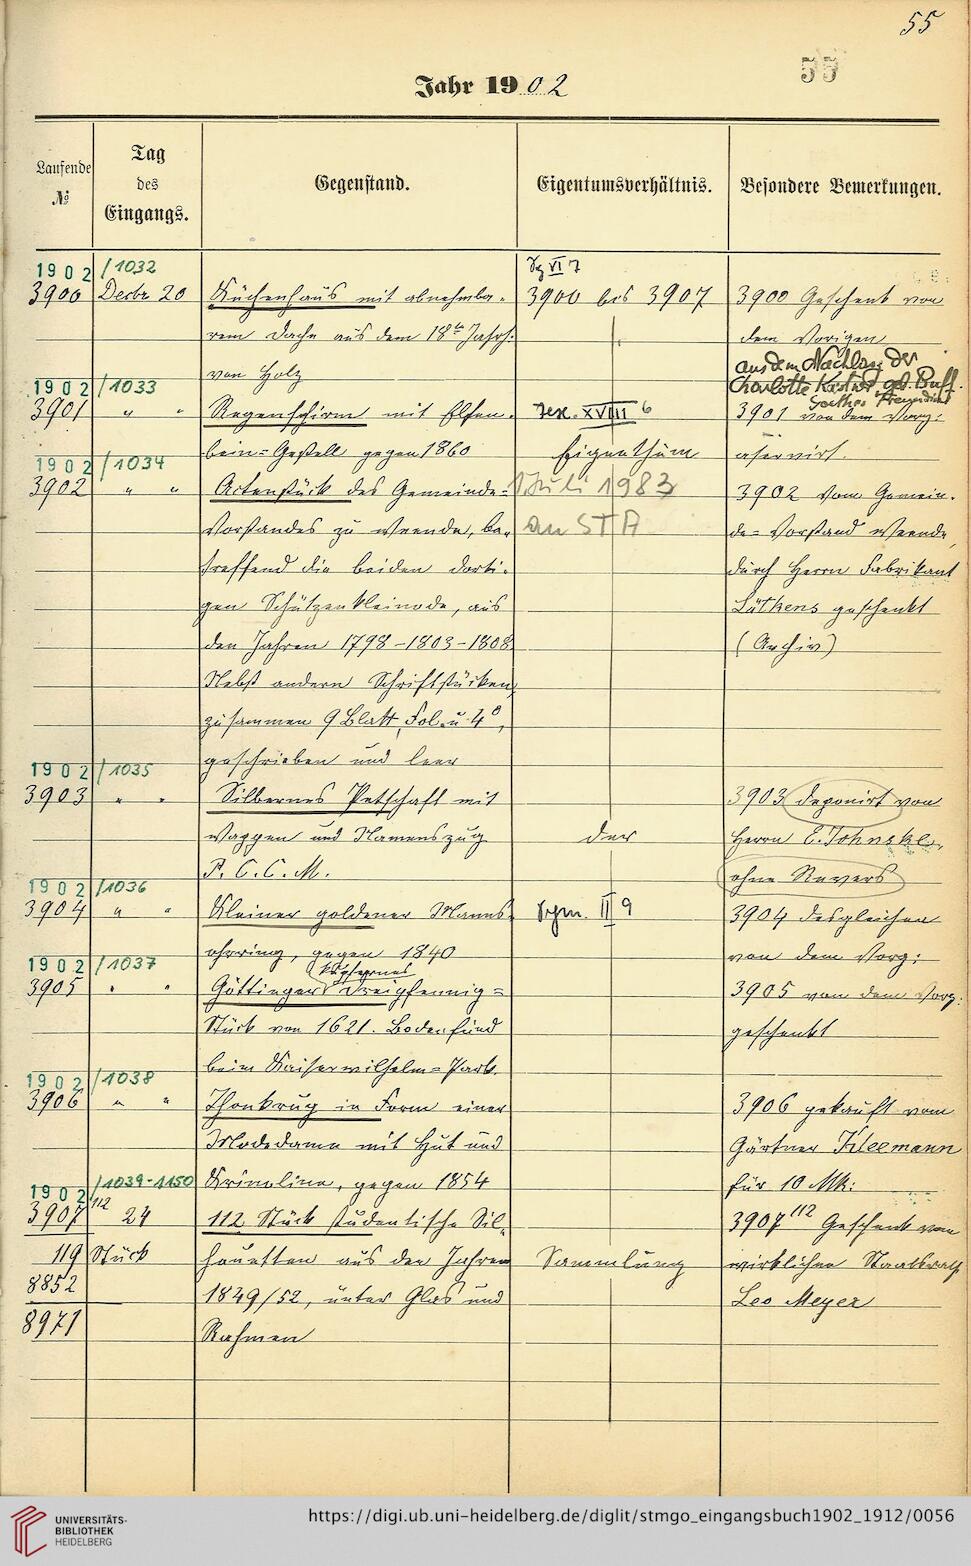 55
55
Jahr 1902
Laufende
№
Tag
des
Eingangs.
Gegenstand.
Eigentumsverhältnis.
Besondere Bemerkungen.
1902/1032
VI 7
3900 Decbr 20 Küchenhaus mit abnehmba- 3900 bis 3907 3900 Geschenk von
rem Dache aus dem 18ten Jahrh. dem Vorigen
von Holz aus dem Nachlass der
Charlotte Kestner geb. Buff.
Goethes Freundin
1902/1033
3901 " " Regenschirm mit Elfen- XVIII 6 3901 von dem Vorg:
bein=Gestell gegen 1860 Eigenthum aservirt.
1902/1034
3902 " " Actenstück des Gemeinde= 1 Juli 1983 3902 Vom Gemein-
Vorstandes zu Weende, be- an STA de=Vorstand Weende,
treffend die beiden dorti- durch Herrn Fabrikant
gen Schützenkleinode, aus Lüthens geschenkt
den Jahren 1798-1803-1808 (Archiv)
Nebst andern Schriftstücken,
zusammen 9 Blatt, Fol. u. 4°,
geschrieben und leer
1902/1035
3903 " " Silbernes Petschaft mit 3903 deponirt von
Wappen und Namenszug der Herrn E.
P. C. C. M. ohne Revers
1902/1036
3904 " " Kleiner goldener Manns- II 9 3904 desgleichen
ohrring, gegen 1840 von dem Vorg:
1902/1037
kupfernes
3905 " " Göttinger Dreipfennig= 3905 von dem Vorg:
Stück von 1621. Bodenfund geschenkt
beim Kaiserwilhelm=Park.
1902/1038
3906 " " Thonkrug in Form einer 3906 gekauft vom
Modedame mit Hut und Gärtner Kleemann
Krinoline, gegen 1854 für 10 Mk:
1902/1039-1150
3907 112 24 112 Stück studentische Sil- 3907 112 Geschenk vom
119 Stück houetten aus den Jahren Sammlung wirklichen Staatsrath
8852 1849/52, unter Glas und Leo Meyer
8971 Rahmen
UNIVERSITÄTS-
BIBLIOTHEK
HEIDELBERG
https://digi.ub.uni-heidelberg.de/diglit/stmgo_eingangsbuch1902_1912/0056